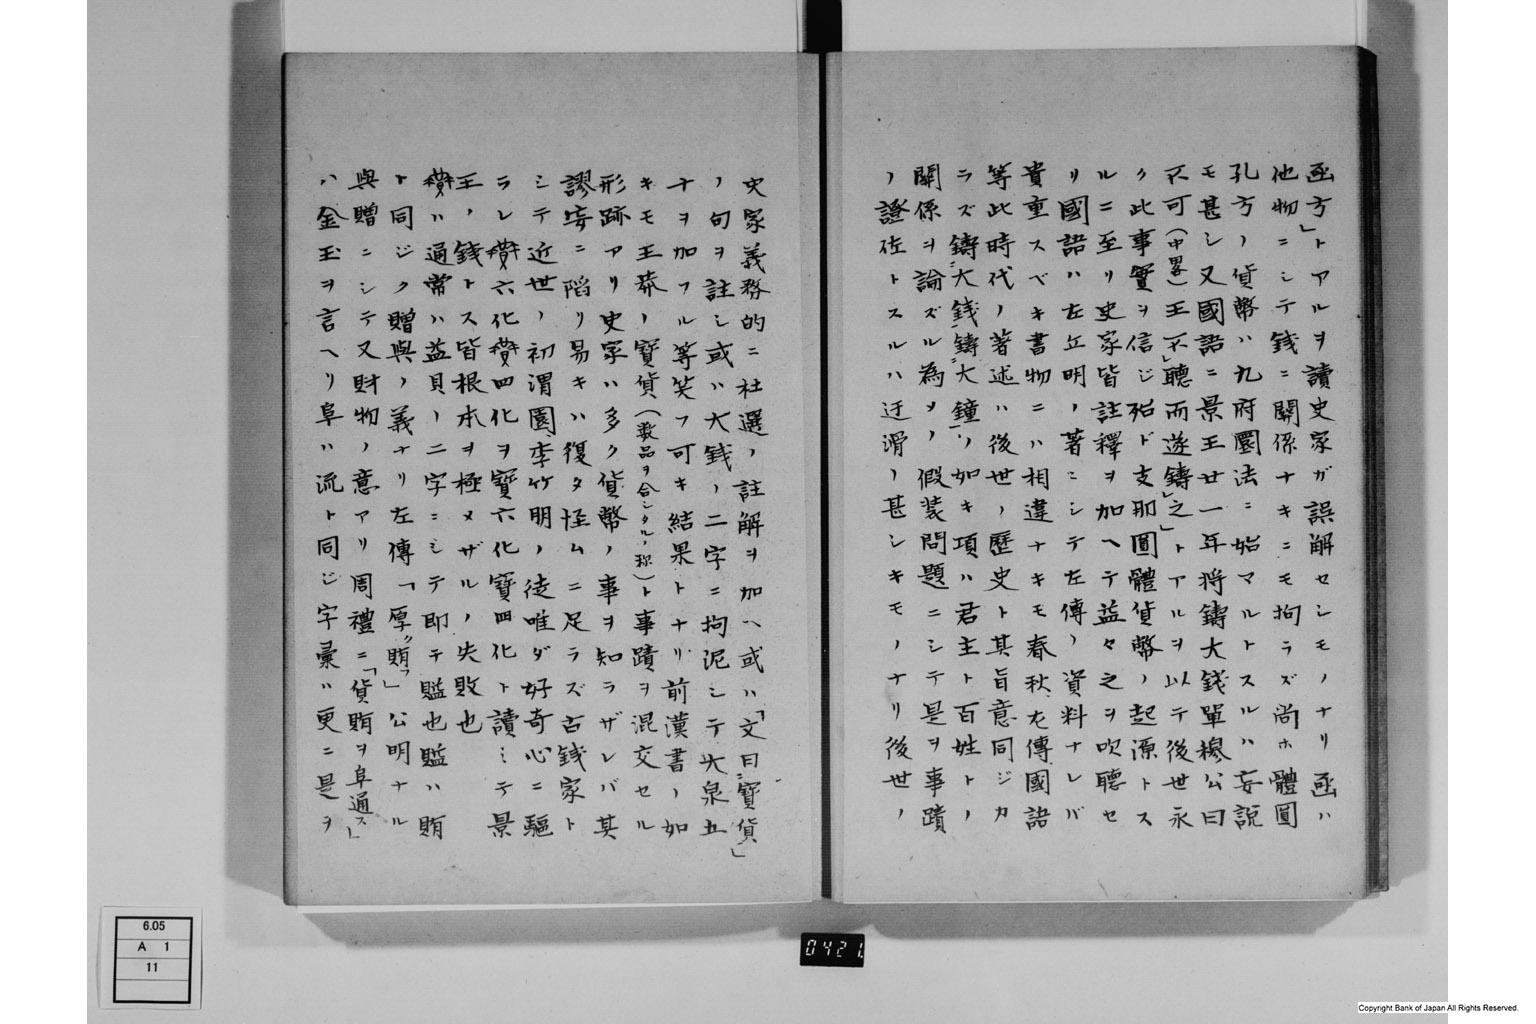 函方」トアルヲ讀史家ガ誤解セシモノナリ函ハ
他物ニシテ錢ニ關係ナキニモ拘ラズ尚ホ體圓
孔方ノ貨幣ハ九府圜法ニ始マルトスルハ妄説
モ甚シ又國語ニ景王廿一年將鑄大錢單穆公曰
不可(中畧)王不」聽而遂鑄」之」トアルヲ以テ後世永
ク此事實ヲ信ジ殆ド支那圓體貨幣ノ起源トス
ルニ至リ史家皆註釋ヲ加ヘテ益々之ヲ吹聽セ
リ國語ハ左丘明ノ著ニシテ左傳ノ資料ナレバ
貴重スベキ書物ニハ相違ナキモ春秋左傳國語
等此時代ノ著述ハ後世ノ歷史ト其旨意同ジカ
ラズ鑄大錢鑄大鐘ノ如キ項ハ君主ト百姓トノ
關係ヲ論ズル為メノ假裝問題ニシテ是ヲ事蹟
ノ證佐トスルハ迂滑ノ甚シキモノナリ後世ノ
史家義務的ニ杜選ノ註解ヲ加ヘ或ハ「文曰寶貨」
ノ句ヲ註シ或ハ大錢ノ二字ニ拘泥シテ大泉五
十ヲ加フル等笑フ可キ結果トナリ前漢書ノ如
キモ王莽ノ寶貨(數品ヲ合シタル称)ト事蹟ヲ混交セル
形跡アリ史家ハ多ク貨幣ノ事ヲ知ラザレバ其
謬妄ニ陷リ易キハ復タ怪ムニ足ラズ古錢家ト
シテ近世ノ初渭園李竹明ノ徒唯ダ好奇心ニ驅
ラレ六化四化ヲ寶六化寶四化ト讀ミテ景
王ノ錢トス皆根本ヲ極メザルノ失敗也
ハ通常ハ益貝ノ二字ニシテ即テ賹也賹ハ賄
ト同ジク贈與ノ義ナリ左傳「厚賄」」公明ナル
與贈ニシテ又財物ノ意アリ周禮ニ「貨賄ヲ阜通ス」
ハ金玉ヲ言ヘリ阜ハ流ト同ジ字彙ハ更ニ是ヲ
0421
6.05
A 1
11
Copyright Bank of Japan All Rights Reserved.